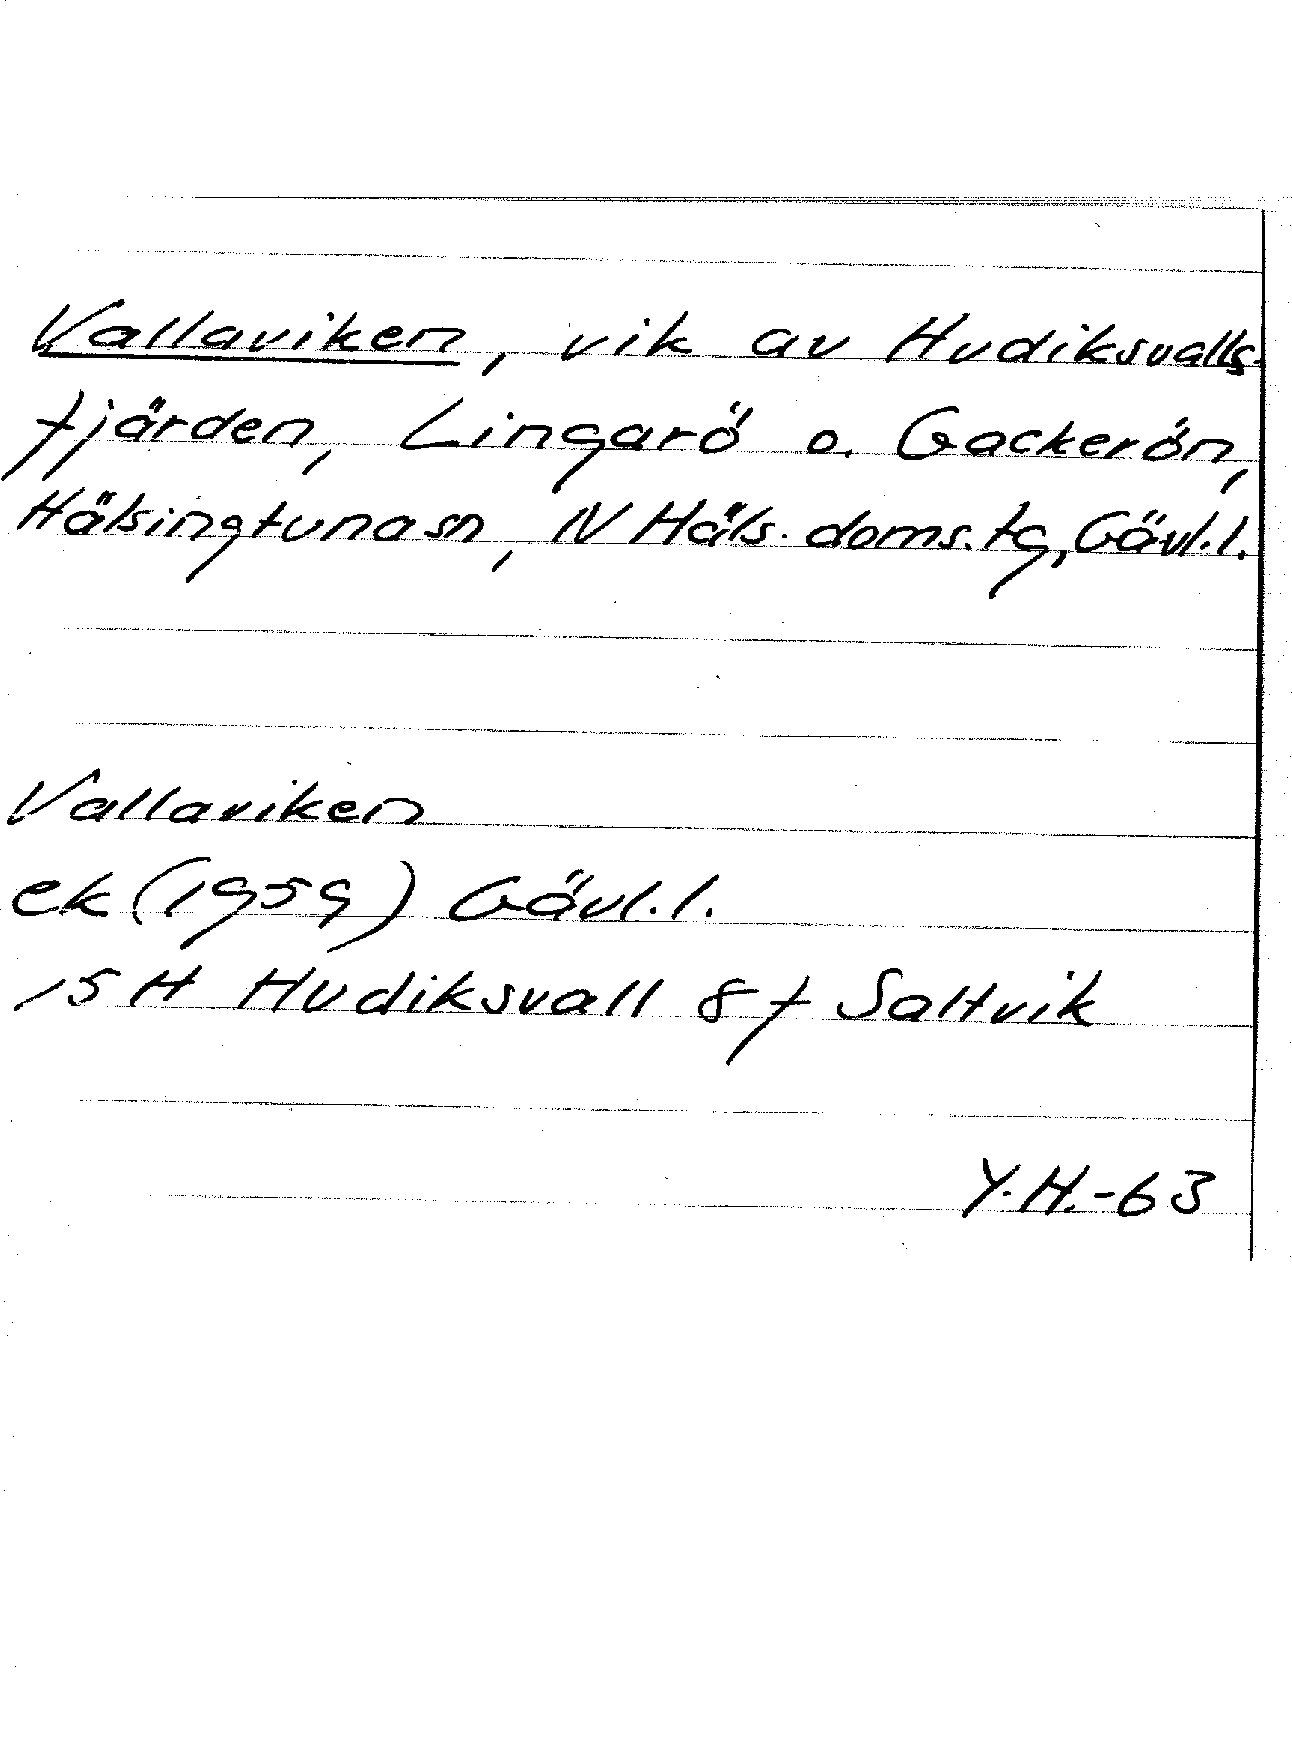 Vallaviken, vik av Hudiksvalls-
fjärden, Lingarö o. Gackerön,
Hälsingtuna sn, N Häls. doms. tg, Gävl. l.
Vallaviken
ek (1959) Gävl. l.
15 H Hudiksvall 8 f Saltvik
Y. H. -63